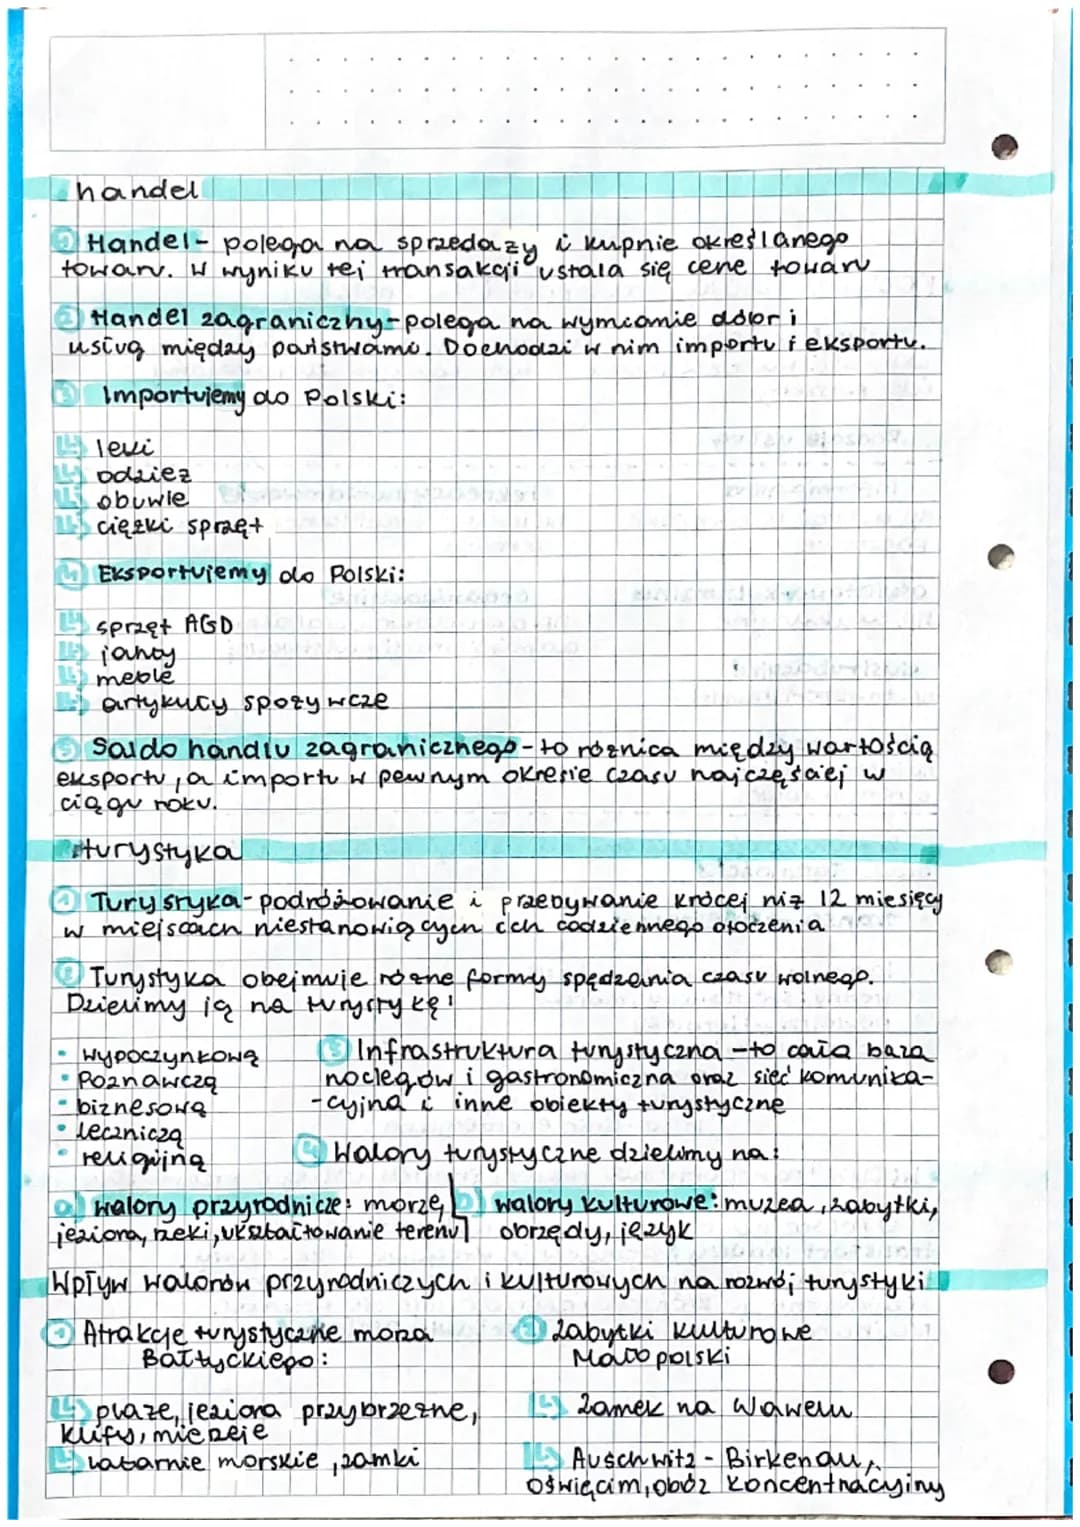 handel
1 Handel - polega na sprzedaży i kupnie określanego
towaru. W wyniku tej transakcji ustala się cene towaru
2 Handel zagraniczny - polega na wymianie dóbr i
usług między państwami. Dochodzi w nim importu i eksportu.
3 Importujemy do Polski:
↳ leki
↳ odzież
↳ obuwie
↳ ciężki sprzęt
4 Eksportujemy do Polski:
↳ sprzęt AGD
↳ jachty
↳ meble
↳ artykuły spożywcze
5 Saldo handlu zagranicznego - to róznica między wartością
eksportu, a importu w pewnym okresie czasu najczęściej w
ciągu roku.
turystyka
1 Turystyka - podróżowanie i przebywanie krócej niż 12 miesięcy
w miejscach niestanowiących ich codziennego otoczenia
2 Turystyka obejmuje rózne formy spędzania czasu wolnego.
Dzielimy ją na turystykę:
• wypoczynkową
• poznawczą
• biznesową
• leczniczą
• religijną
3 Infrastruktura turystyczna - to cała baza
noclegów i gastronomiczna oraz sieć komunika-
-cyjna i inne obiekty turystyczne
4 Walory turystyczne dzielimy na:
a) walory przyrodnicze: morze,
jeziora, rzeki, ukształtowanie terenu
b) walory kulturowe: muzea, zabytki,
obrzędy, język
Wpływ walorów przyrodniczych i kulturowych na rozwój turystyki
1 Atrakcje turystyczne morza
Bałtyckiego:
↳ plaże, jeziora przybrzeżne,
klify, mierzeje
↳ latarnie morskie, zamki
2 Zabytki kulturowe
Małopolski
↳ Zamek na Wawelu
↳ Auschwitz - Birkenau,
Oświęcim, obóz koncentracyjny